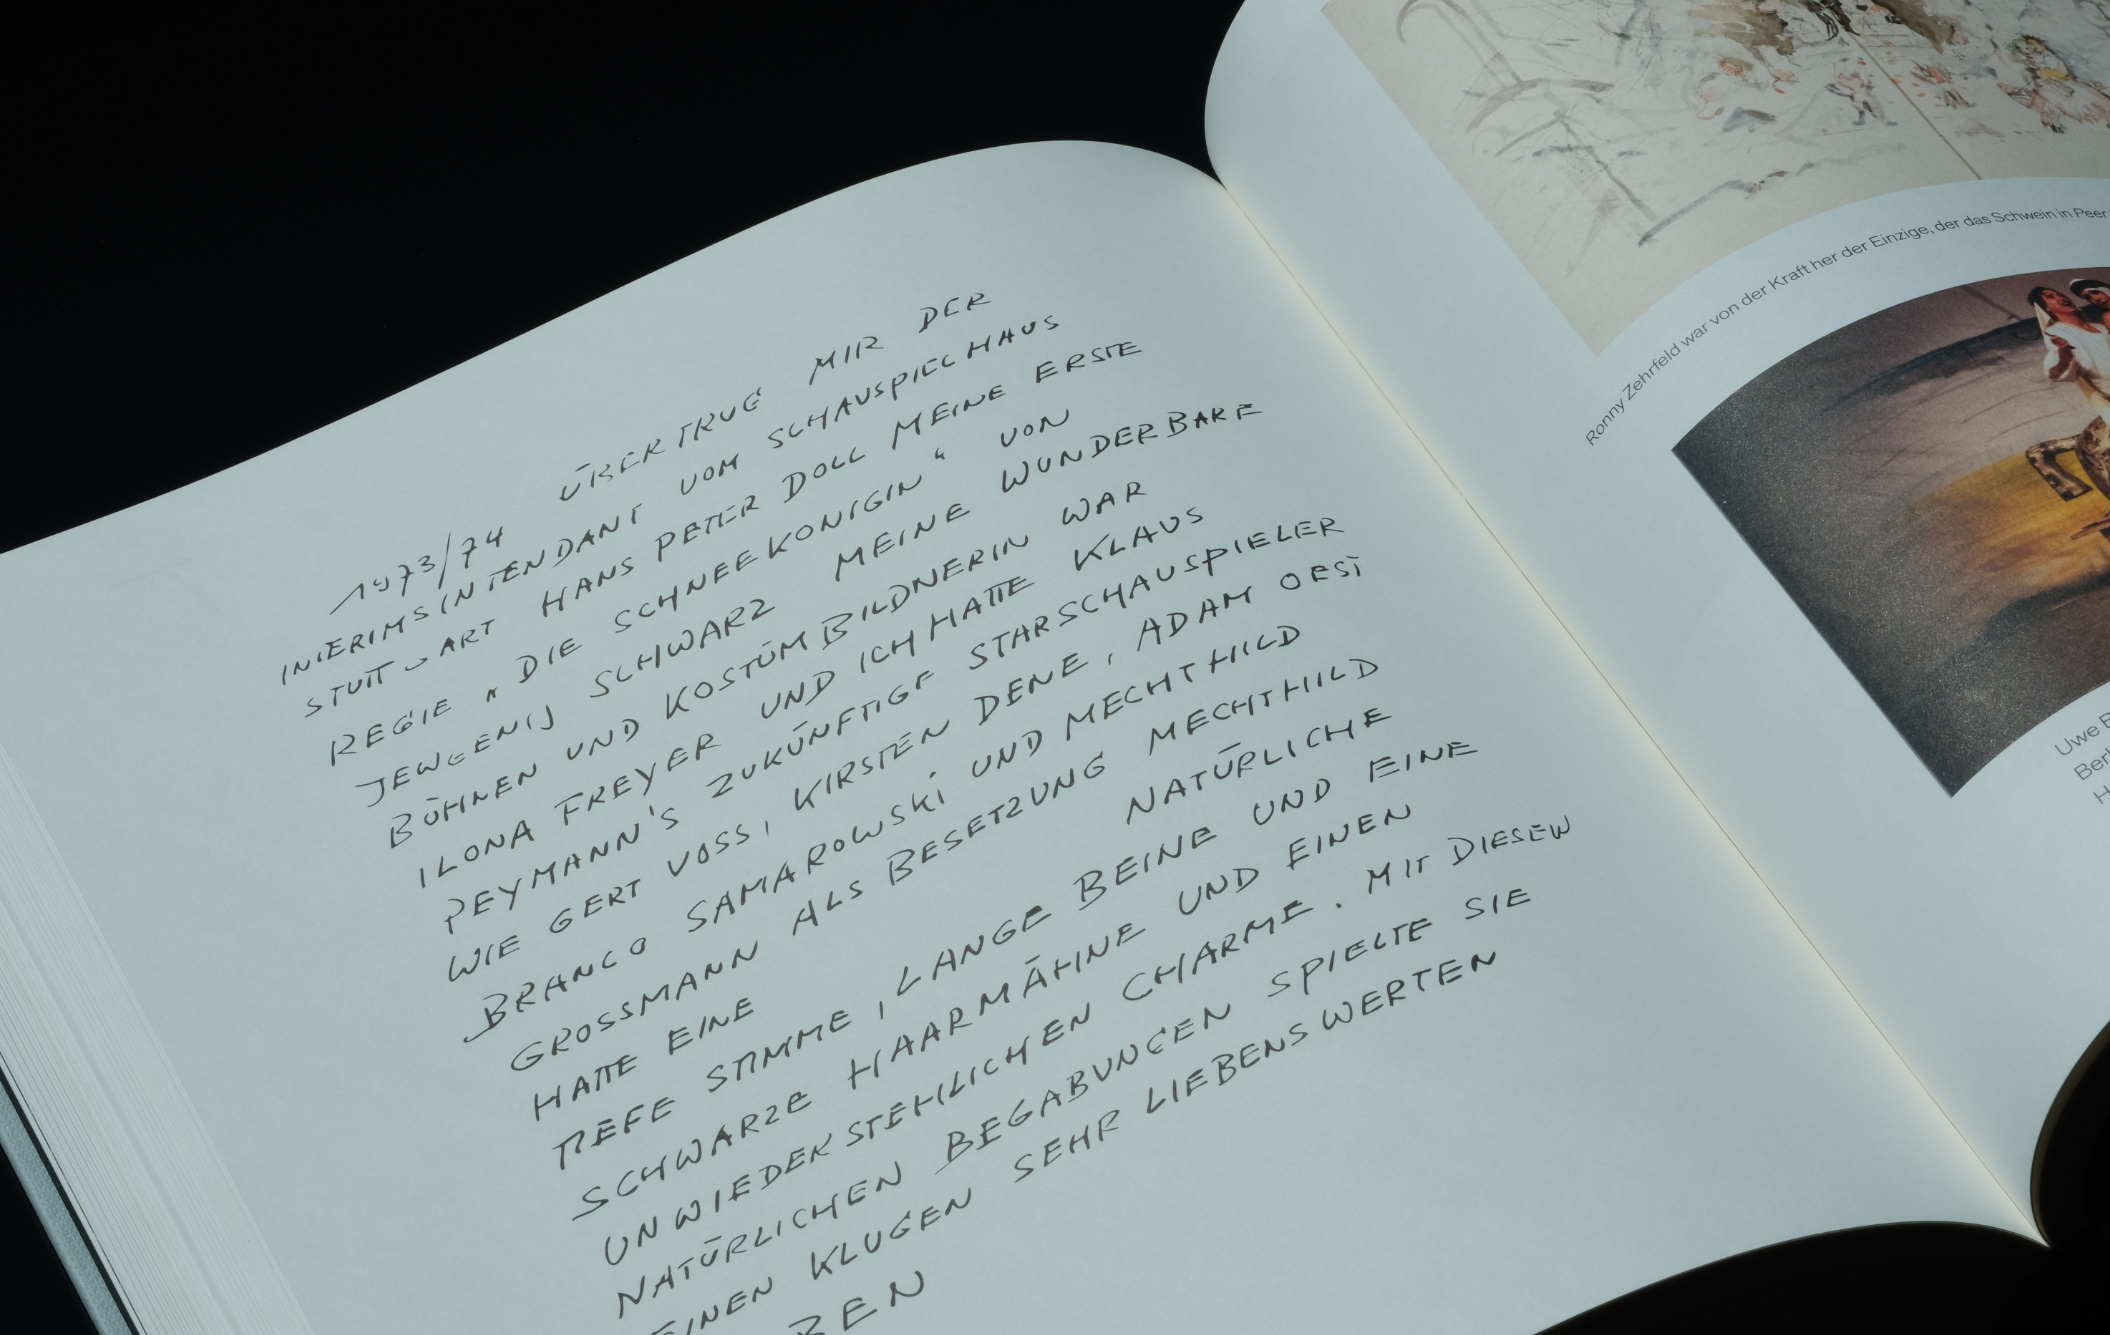 1973/74 ÜBERTRUG MIR DER
INTERIMSINTENDANT VOM SCHAUSPIELHAUS
STUTTGART HANS PETER DOLL MEINE ERSTE
REGIE „DIE SCHNEEKÖNIGIN“ VON
JEWGENIJ SCHWARZ MEINE WUNDERBARE
BÜHNEN UND KOSTÜMBILDNERIN WAR
ILONA FREYER UND ICH HATTE KLAUS
PEYMANN'S ZUKÜNFTIGE STARSCHAUSPIELER
WIE GERT VOSS, KIRSTEN DENE, ADAM OESI
BRANCO SAMAROWSKI UND MECHTHILD
GROSSMANN ALS BESETZUNG MECHTHILD
HATTE EINE NATÜRLICHE
TIEFE STIMME, LANGE BEINE UND EINE
SCHWARZE HAARMÄHNE UND EINEN
UNWIEDERSTEHLICHEN CHARME. MIT DIESEN
NATÜRLICHEN BEGABUNGEN SPIELTE SIE
EINEN KLUGEN SEHR LIEBENSWERTEN
Ronny Zehrfeld war von der Kraft her der Einzige, der das Schwein in Peer
Uwe B
Berl
H